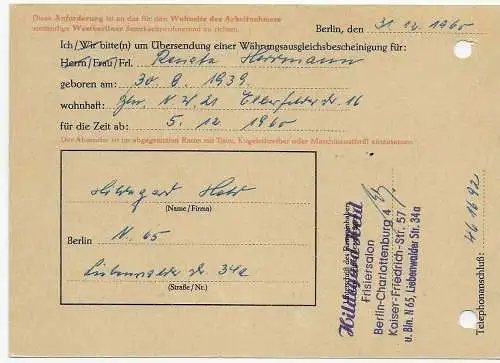 Diese Anforderung ist an das für den Wohnsitz des Arbeitnehmers
zuständige Westberliner Bezirkswohnamt zu richten.
Berlin, den 31. 12. 1960
Ich/Wir bitte(n) um Übersendung einer Währungsausgleichsbescheinigung für:
Herrn/Frau/Frl. Renate Herrmann
geboren am: 30. 8. 1939
wohnhaft: Bln. N.W. 21 Elberfelder Str. 16
für die Zeit ab: 5. 12. 1960
Der Absender ist im abgegrenzten Raum mit Tinte, Kugelschreiber oder Maschinenschrift einzusetzen.
Hildegard Held
(Name/Firma)
Berlin N. 65
Liebenwalder Str. 34a
(Straße/Nr.)
Hildegard Held
Frisiersalon
Berlin-Charlottenburg 4
Kaiser-Friedrich-Str. 57
u. Bln. N 65, Liebenwalder Str. 34a
Telephonanschluß: 461692